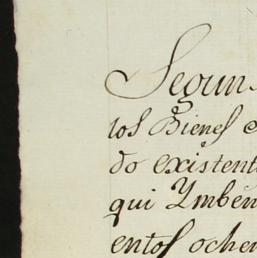 Segun
los Bienes
do existent
qui Ymben
entos ochen